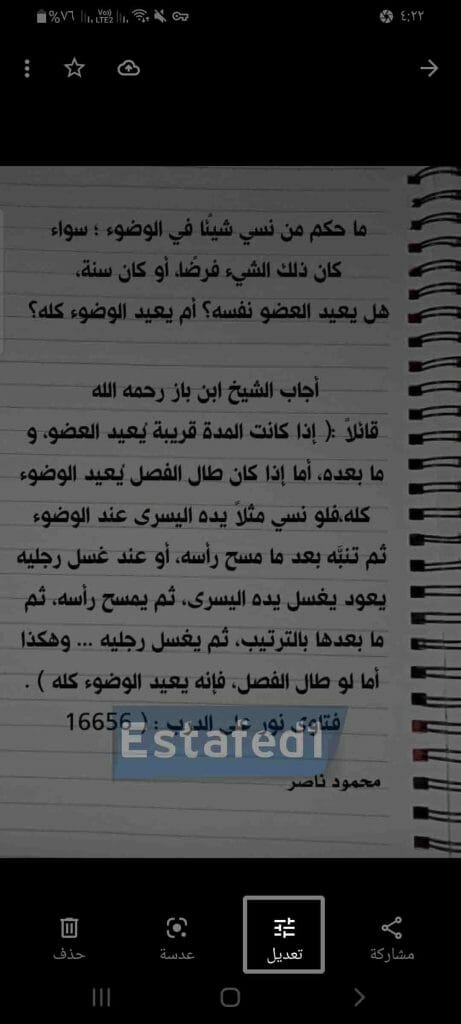 ٤:٢٢
%٧٦
Vo))
LTE2
ما حكم من نسي شيئًا في الوضوء ؛ سواء
كان ذلك الشيء فرضًا، أو كان سنة،
هل يعيد العضو نفسه؟ أم يعيد الوضوء كله؟
أجاب الشيخ ابن باز رحمه الله
قائلاً :( إذا كانت المدة قريبة يُعيد العضو، و
ما بعده، أما إذا كان طال الفصل يُعيد الوضوء
كله،فلو نسي مثلاً يده اليسرى عند الوضوء
ثم تنبَّه بعد ما مسح رأسه، أو عند غسل رجليه
يعود يغسل يده اليسرى، ثم يمسح رأسه، ثم
ما بعدها بالترتيب، ثم يغسل رجليه ... وهكذا
أما لو طال الفصل، فإنه يعيد الوضوء كله ) .
فتاوى نور على الدرب : ( 16656
Estafedi
محمود ناصر
مشاركة
تعديل
عدسة
حذف